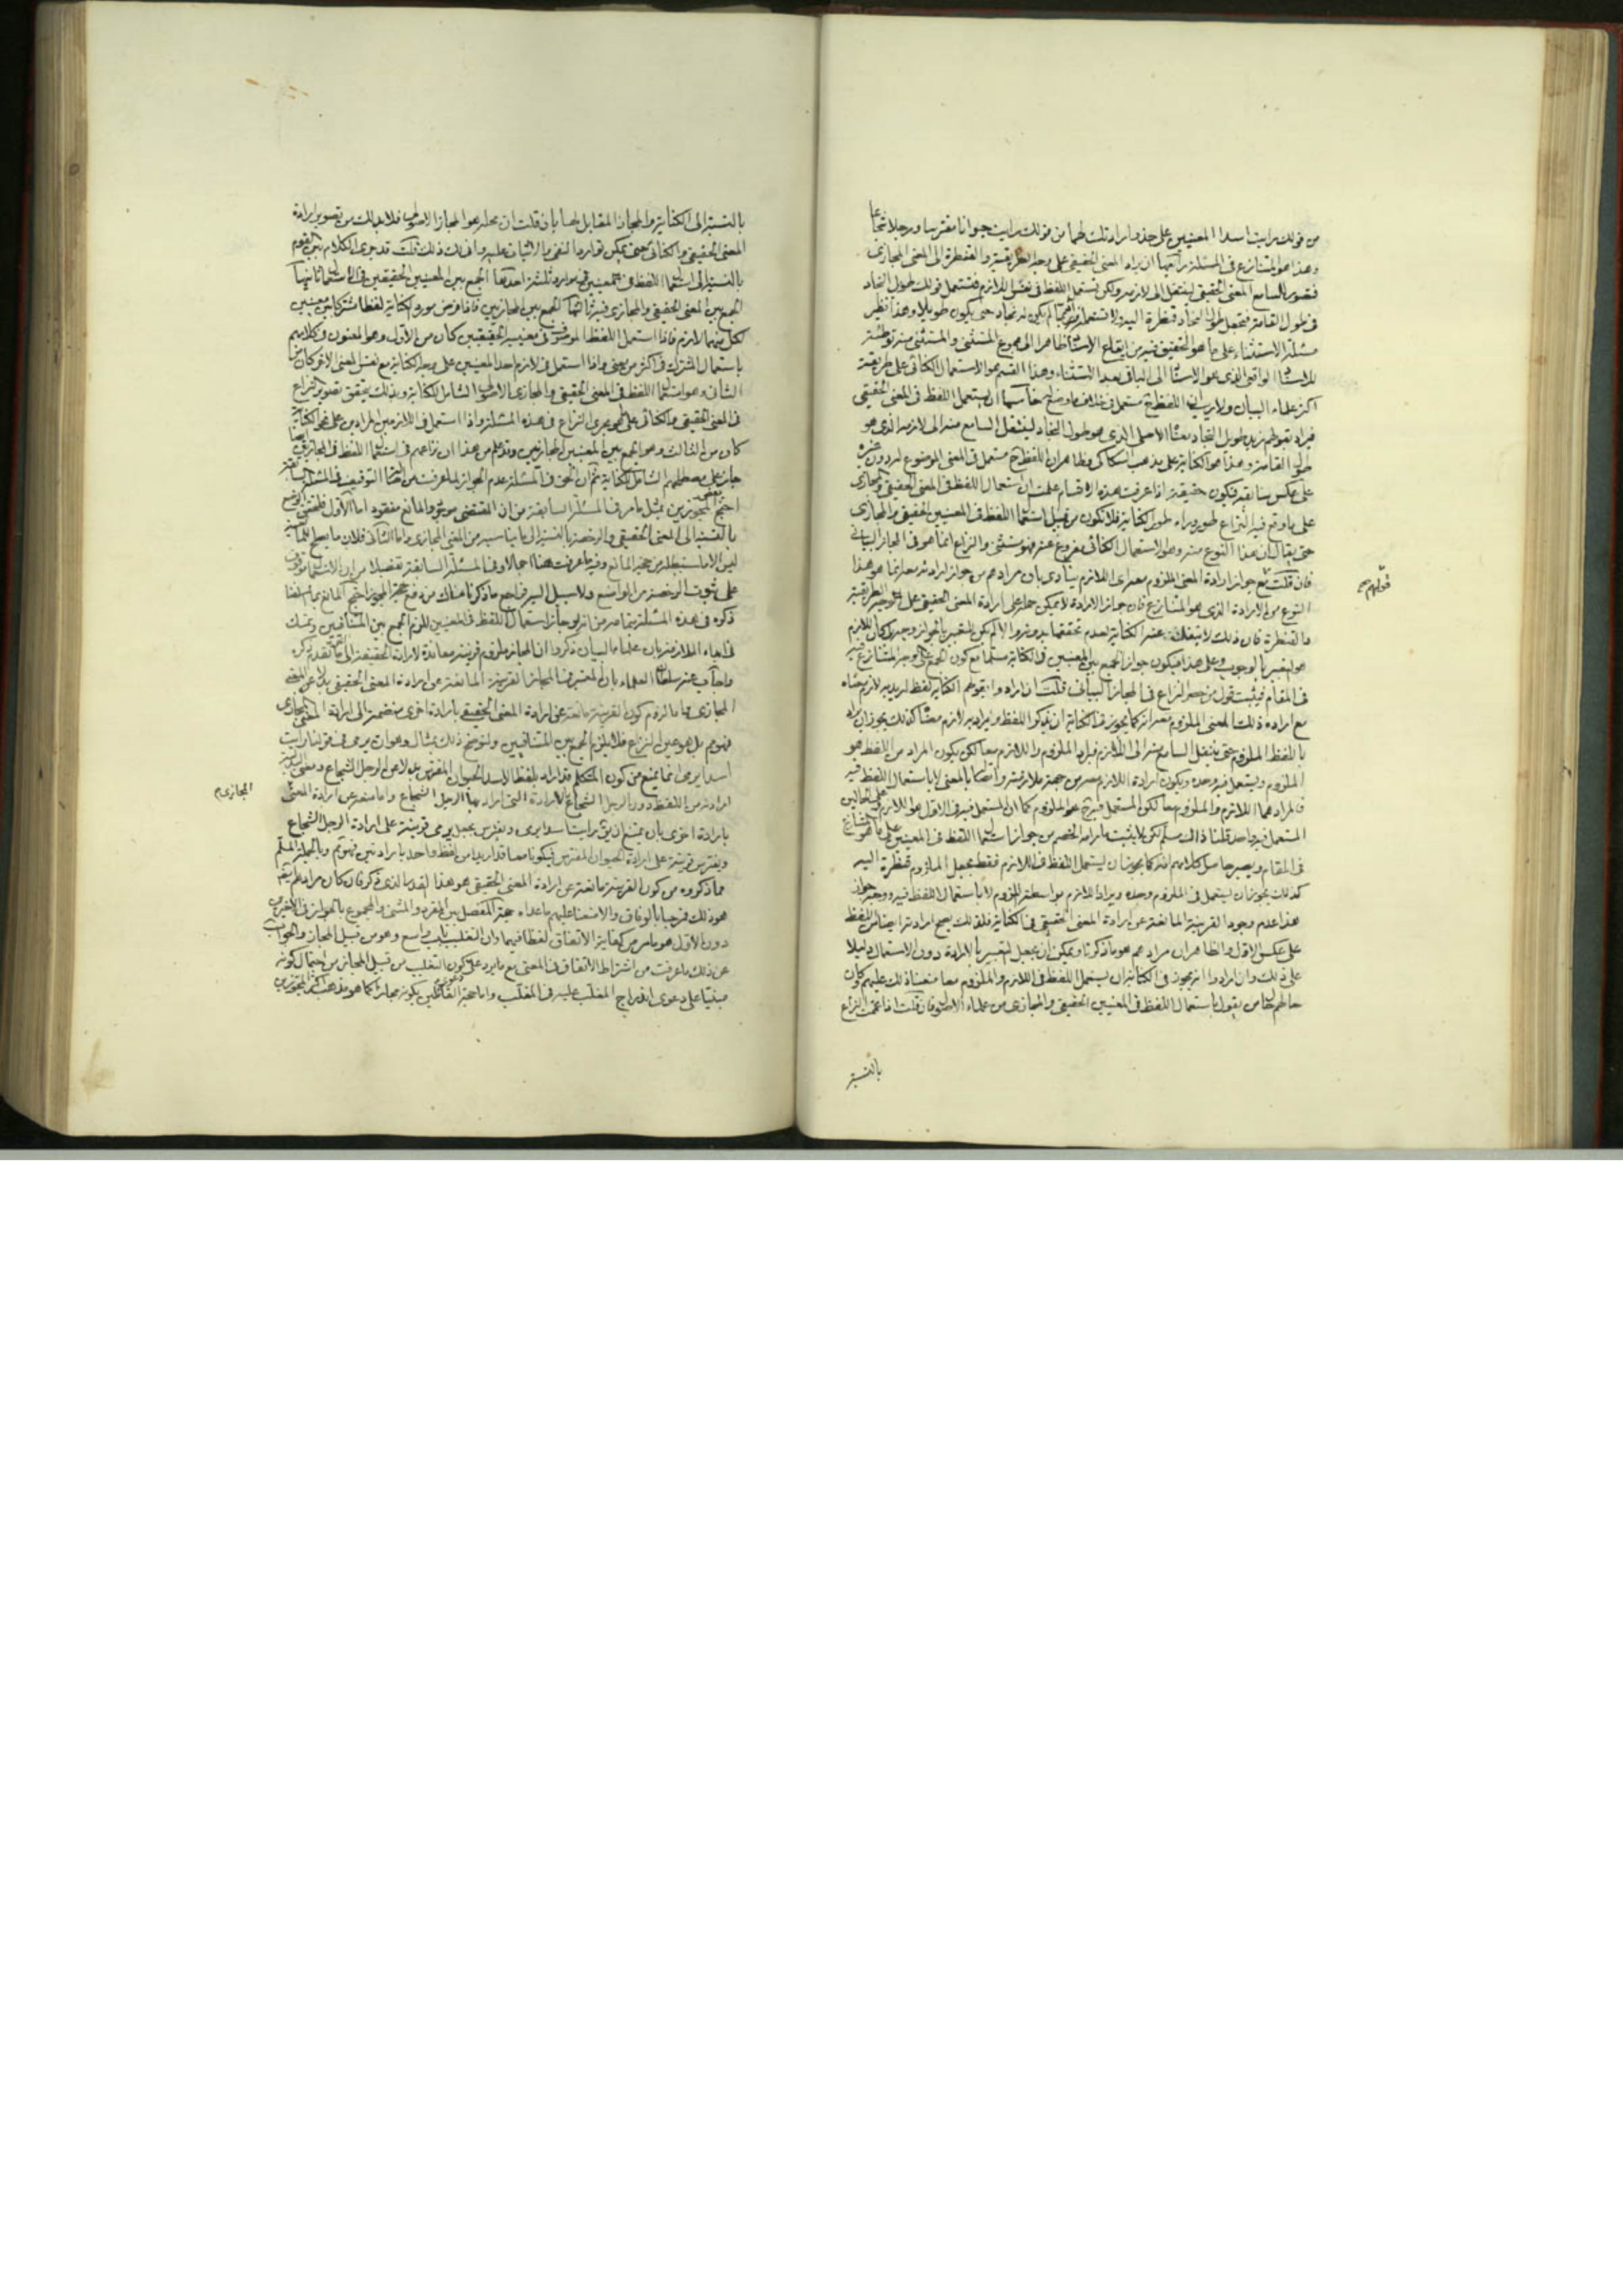 من قولك رايت اسدا المعنيين على حذو ارادتك لهما من قولك رايت حيوانا مفترسا ورجلا شجاعا
وهذا هو المتنازع في المسئلة رابعها ان يراد المعنى الحقيقي على وجه الطريقية والقنطرة الى المعنى المجازي
فتصور السامع المعنى الحقيقي لينتقل الى لازمه ولكن تستعمل اللفظ في نفس اللازم فتستعمل قولك طويل النجاد
في طول القامة فتجعل طول النجاد قنطرة اليه ولا تستعمله لم يكن له نجاد حتى يكون طويلا وهذا نظير
مسئلة الاستثناء على ما هو التحقيق فيه من ايقاع الاسناد ظاهرا الى مجموع المستثنى والمستثنى منه توطئة
للاسناد الواقعي الذي هو الاسناد الى الباقي بعد الاستثناء وهذا القسم هو الاستعمال الكنائي على طريقة
اكثر علماء البيان ولا ريب ان اللفظ ح مستعمل في خلاف ما وضع له خامسها ان يستعمل اللفظ في المعنى الحقيقي
فيراد بقولهم زيد طويل النجاد معناه الاصلي الذي هو طول النجاد لينتقل السامع منه الى لازمه الذي هو
طول القامة وهذا هو الكناية على مذهب السكاكي وظاهر ان اللفظ ح مستعمل في المعنى الموضوع له دون غيره
على عكس سابقه فيكون حقيقة اذا عرفت هذه الاقسام علمت ان استعمال اللفظ في المعنى الحقيقي والمجازي
على ما وقع فيه النزاع طور وراء طور الكناية فلا تكون من قبيل استعمال اللفظ في المعنيين الحقيقي والمجازي
حتى يقال ان هذا النوع منه وهو الاستعمال الكنائي مفروغ عنه فهو مستثنى والنزاع انما هو في المجاز البياني
فان قلت مع جواز ارادة المعنى الملزوم معه اي اللازم ينادي بان مرادهم من جواز ارادته معه انما هو هذا
قولهم صح
النوع من الارادة الذي هو المتنازع فان جواز الارادة لا يمكن حمله على ارادة المعنى الحقيقي على وجه الطريقية
والقنطرة فان ذلك لا ينفك عنه الكناية لعدم تحققها بدونه والا لم يكن للتعبير بالجواز وجه بل كان اللازم
هو التعبير بالوجوب وعلى هذا فيكون جواز الجمع بين المعنيين في الكناية مسلما مع كون الجمع على الوجه المتنازع فيه
في المقام فيثبت قول من حصر النزاع في المجاز البياني قلت ان ارادوا بقولهم الكناية لفظ اريد به لازم معناه
مع ارادة ذلك المعنى الملزوم معه انه كما يجوز في الكناية ان يذكر اللفظ ويراد به لازم معناه كذلك يجوز ان يراد
باللفظ الملزوم حتى ينتقل السامع منه الى اللازم فيراد الملزوم واللازم معا لكن يكون المراد من اللفظ هو
الملزوم ويستعمل فيه وحده ويكون ارادة اللازم معه من جهة ملازمته واتصاله بالمعنى لا باستعمال اللفظ فيه
فالمراد هما اللازم والملزوم معا لكن المستعمل فيه ح هو الملزوم كما ان المستعمل فيه في الاول هو اللازم وعلى الحالين
المستعمل فيه واحد قلنا ذلك مسلم لكن لا يثبت ما رامه الخصم من جواز استعمال اللفظ في المعنيين على ما هو المتنازع
في المقام ويصير حاصل كلامهم انه كما يجوز ان يستعمل اللفظ في اللازم فقط بجعل الملزوم قنطرة اليه
كذلك يجوز ان يستعمل في الملزوم وحده ويراد اللازم بواسطة الملزوم لا باستعمال اللفظ فيه ووجه جواز
هذا عدم وجود القرينة المانعة عن ارادة المعنى الحقيقي في الكناية فلذلك يصح ارادته ايضا من اللفظ
على عكس الاول والظاهر ان مرادهم هو ما ذكرنا ويمكن ان يجعل التعبير بالارادة دون الاستعمال دليلا
على ذلك وان ارادوا انه يجوز في الكناية ان يستعمل اللفظ في اللازم والملزوم معا منعنا ذلك عليهم وكان
حالهم كحال من يقول باستعمال اللفظ في المعنيين الحقيقي والمجازي من علماء الاصول فان قلت اذا عممت النزاع
بالنسبة
بالنسبة الى الكناية والمجاز المقابل لها بان قلت ان محله هو المجاز الاصولي فلا بد لك من تصوير ارادة
المعنى الحقيقي والكنائي حتى يمكن توارد النفي والاثبات عليه وانى لك ذلك قلت قد جرى الكلام بين القوم
بالنسبة الى استعمال اللفظ في المعنيين في موارد ثلثة احدها الجمع بين المعنيين الحقيقيين في الاستعمال ثانيها
الجمع بين المعنى الحقيقي والمجازي فيه ثالثها الجمع بين المجازيين فاذا فرض مورد الكناية لفظا مشتركا بين معنيين
لكل منهما لازم فاذا استعمل اللفظ الموصوف في معنييه الحقيقيين كان من الاول وهو المعنون في كلامهم
باستعمال المشترك في اكثر من معنى واذا استعمل في لازم احد المعنيين على وجه الكناية مع نفس المعنى الاخر كان من
الثاني وهو استعمال اللفظ في المعنى الحقيقي والمجازي الاصولي الشامل للكناية وبذلك يتحقق تصوير النزاع
في المعنى الحقيقي والكنائي على نحو يجري النزاع في هذه المسئلة واذا استعمل في اللازمين المرادين على نحو الكناية
كان من الثالث وهو الجمع بين المعنيين المجازيين وقد علم من هذا ان نزاعهم في استعمال اللفظ في المجازيين ايضا
جار على مصطلحهم الشامل للكناية ثم ان الحق في المسئلة عدم الجواز لما عرفت من التوقيف في المسئلة السابقة
احتج بعض المجوزين بمثل ما مر في المسئلة السابقة من ان المقتضي موجود والمانع مفقود اما الاول فلتحقق الوضع
بالنسبة الى المعنى الحقيقي والرخصة بالنسبة الى ما يناسبه من المعنى المجازي واما الثاني فلان ما يصلح للمانعية
ليس الا ما استنبطه من حجة المانع وفيه ما عرفت هنا اجمالا وفي المسئلة السابقة تفصيلا من ان الاستعمال موقوف
على ثبوت الرخصة من الواضع ولا سبيل اليه فراجع ما ذكرناه هناك من دفع حجة المجوز احتج المانع بما
ذكره في هذه المسئلة بخاصة من انه لو جاز استعمال اللفظ في المعنيين للزم الجمع بين المتنافيين وتمسك
في بناء الملازمة بان علماء البيان ذكروا ان المجاز ملزوم قرينة معاندة لارادة الحقيقة الى اخر ما تقدم ذكره
واجاب عنه سلطان العلماء بان المعتبر في المجاز القرينة المانعة عن ارادة المعنى الحقيقي بدلا عن المعنى
المجازي واما لزوم كون القرينة مانعة عن ارادة المعنى الحقيقي بارادة اخرى منضمة الى ارادة المعنى المجازي
فهو مم بل هو عين النزاع فلا يلزم الجمع بين المتنافيين ولنوضح ذلك بمثال وهو ان يرمي في قولنا رايت
اسدا يرمي انما يمنع من كون المتكلم قد اراد بلفظ الاسد الحيوان المفترس بدلا عن الرجل الشجاع
المجازي م
ارادته من اللفظ دون الرجل الشجاع بالارادة التي اراد بها الرجل الشجاع واما منعه عن ارادة المعنى
بارادة اخرى بان يمتنع ان يق رايت اسدا يرمي ويفترس بجعل يرمي قرينة على ارادة الرجل الشجاع
ويفترس قرينة على ارادة الحيوان المفترس فيكونا معا قد اريدا من لفظ واحد بارادتين فهو مم وبالجملة المسلم
مما ذكروه من كون القرينة مانعة عن ارادة المعنى الحقيقي هو هذا القدر الذي ذكر فان كان مرادهم
هو ذلك فمرحبا بالوفاق والا منعنا عليهم ما عداه حجة المفصل بين المفرد والمثنى والمجموع بالجواز في الاخيرين
دون الاول هو ما مر من كفاية الاتفاق لفظا فيهما وان التغليب باب واسع وهو من قبيل المجاز والجواب
عن ذلك ما عرفت من اشتراط الاتفاق في المعنى مع ما يرد على كون التغليب من قبيل المجاز من احتمال كونه
مبنيا على دعوى اندراج المغلب عليه في المغلب واما حجة القائلين بكونه مجازا كما هو مذهب اكثر المجوزين